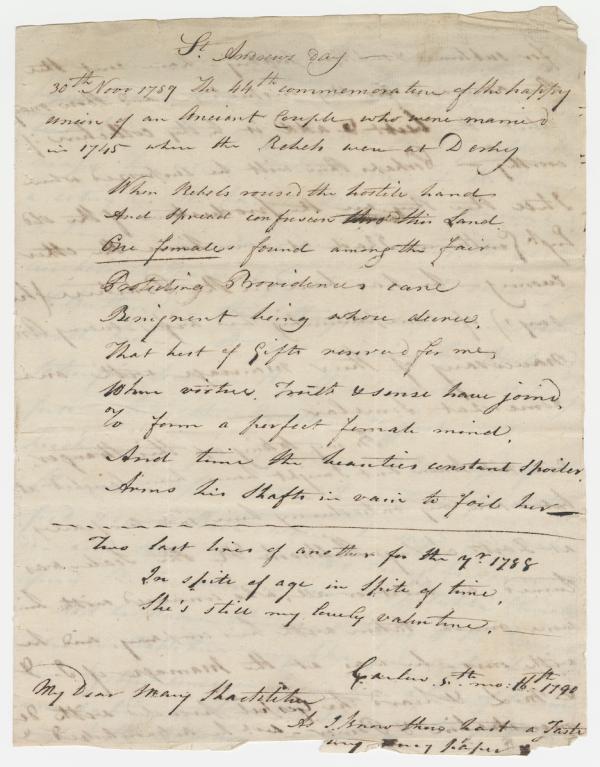 St. Andrews day
30th Novr 1789 The 44th commemoration of the happy
union of an Ancient Couple who were married
in 1745 when the Rebels were at Derby
When Rebels rous'd the hostile hand
And spread confusion thro this Land
One female I found among the fair
Protecting Providence's care
Benignent being whose decree,
That best of Gifts reserv'd for me,
Where virtue, Truth & sense have join'd,
To form a perfect female mind,
And time the beauties constant spoiler
Arms his shafts in vain to foil her
Two last lines of another for the yr 1788
In spite of age in spite of time,
She's still my lovely valentine.
Carlow 5th mo: 16th 1790
My Dear Mary Shackleton
As I know thou hast a Taste
any paper